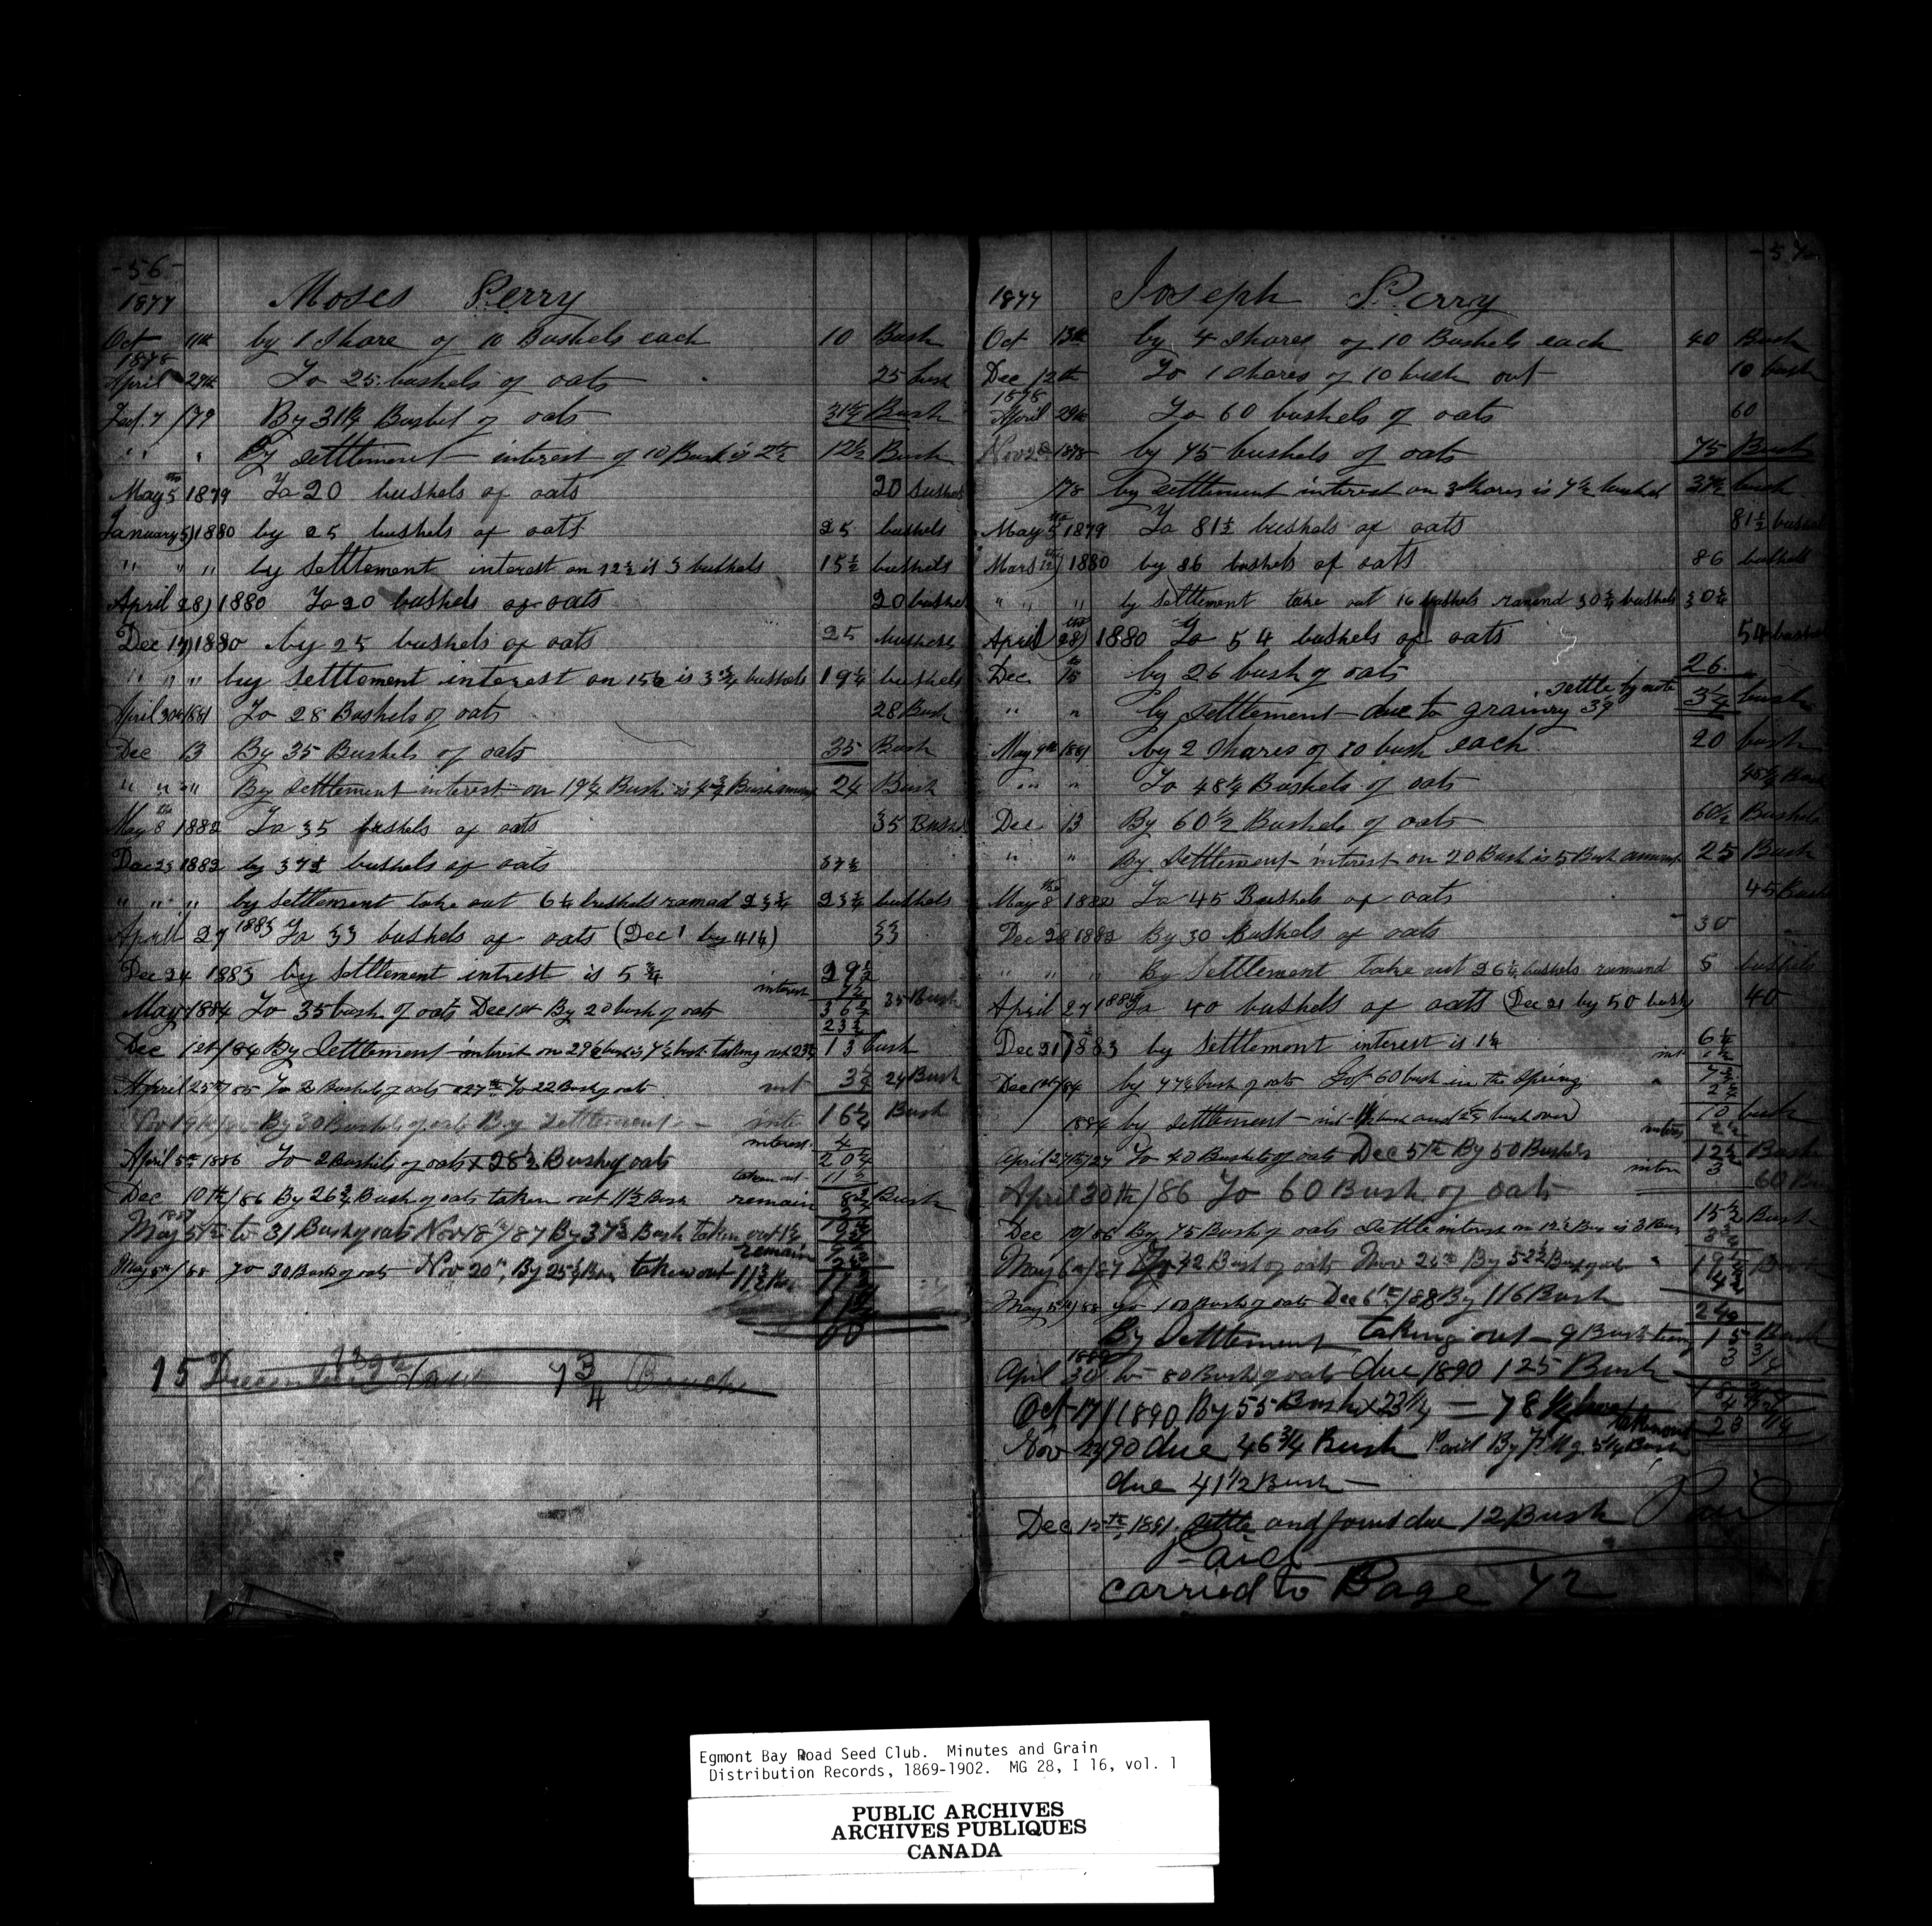 -56-
1877 Moses Perry
Oct 11th by 1 Share of 10 Bushels each 10 Bush
1878
April 27th To 25 bushels of oats 25 bush
7 /79 By 31¼ Bushel of oats 31¼ Bush
" " " By settlement interest of 10 Bush is 2½ 12½ Bush
May 5th 1879 To 20 bushels of oats 20 bushels
January 5) 1880 by 25 bushels of oats 25 bushels
" " " by settlement interest on 12½ is 3 bushels 15½ bushels
April 28) 1880 To 20 bushels of oats 20 bushe
Dec 17) 1880 by 25 bushels of oats 25 bushels
" " " by settlement interest on 15½ is 3¾ bushels 19¼ bushels
April 30th 1881 To 28 Bushels of oats 28 Bush
Dec 13 By 35 Bushels of oats 35 Bush
" " " By settlement interest on 19¼ Bush is 4¾ Bush 24 Bush
May 8th 1882 To 35 bushels of oats 35 Bush
Dec 23 1882 by 37½ bushels of oats 37½
" " " by settlement take out 6¼ bushels ramad 23¾ 23¾ bushels
April 27 1883 To 33 bushels of oats (Dec 1 by 41¼) 33
Dec 24 1883 by settlement intrest is 5¾ 29½
interest 7¼
May 1884 To 35 bush of oats Dec 1st By 20 bush of oats 36¾ 35 Bush
23¾
Dec 1st/84 By Settlement interest on 29½ bush is 7¼ bush taking out 23¾ 13 bush
April 25th/85 To 2 Bushels of oats 27th To 22 Bush of oats int 3¼ 24 Bush
By 30 Bushels of oats By settlement inte 16¼ Bush
interest 4
April 5th 1886 To 2 Bushels of oats & 28½ Bush of oats 20¼
taken out 11½
Dec 10th/86 By 26¾ Bush of oats taken out 11½ Bush remain 8¾ Bush
1887
May 5th to 31 Bush of oats Nov 18th/87 By 37½ Bush taken out 1½
remain
May 5th/88 To 30 Bush of oats Nov 20th By 25½ Bus taken out 11½ Bus
15 December 7¾ Bouch
-57-
1877 Joseph Perry
Oct 13th by 4 shares of 10 Bushels each 40 Bush
Dec 12th To 1 shares of 10 bush out 10 bush
1878
April 29th To 60 bushels of oats 60
Nov 2 1878 by 75 bushels of oats 75 Bush
/78 by settlement interest on 3 shares is 7½ bushel 37½ bush
May 5th 1879 To 81½ bushels of oats 81½ bushel
Mars 12) 1880 by 86 bushels of oats 86 bushels
" " " by settlement take out 16 bushels ramend 30¾ bushels 30¾
April 28) 1880 To 54 bushels of oats 54 bushe
Dec 15 by 26 bush of oats 26
settle by note
" " by settlement due to grainry 39 3¼ bush
May 9th 1881 by 2 shares of 10 bush each 20 bush
" " To 48¼ Bushels of oats 48¼ Bush
Dec 13 By 60½ Bushels of oats 60½ Bushels
" " By settlement interest on 20 Bush is 5 Bush amount 25 Bush
May 8th 1882 To 45 Bushels of oats 45 Bush
Dec 28 1882 By 30 Bushels of oats 30
" " " By Settlement take out 26¼ bushels ramend 5 bushels
April 27 1883 To 40 bushels of oats (Dec 21 by 50 bush) 40
Dec 21) 1883 by settlement interest is 1¼ 6¼
Dec 1st/84 by 77½ bush of oats Got 60 bush in the Spring 7¾
1884 by settlement 10 bush
interes 2½
April 27th To 40 Bushels of oats Dec 5th By 50 Bushels 12½ Bush
inter 3
April 30th/86 To 60 Bush of oats 60 Bu
Dec 10/86 By 75 Bush of oats Settle interest on 12½ Bus is 3 Bus 15½ Bush
May 6th/87 To 42 Bush of oats Nov 26th By 52½ Bush of oats 19¼
May 5th/88 To 100 Bush of oats Dec 6th/88 By 116 Bush 24
By Settlement taking out 9 Bush 15 Bush
1889
April 30 to 80 Bush of oats due 1890 125 Bush
Oct 17/1890 By 55 Bush x 23¼ = 78¼
Nov 90 due 46¾ Bush Paid By 5¼ Bush
due 41½ Bush
Dec 15th 1891 settle and found due 12 Bush Paid
Paid
carried to Page 72
Egmont Bay Road Seed Club. Minutes and Grain
Distribution Records, 1869-1902. MG 28, I 16, vol. 1
PUBLIC ARCHIVES
ARCHIVES PUBLIQUES
CANADA